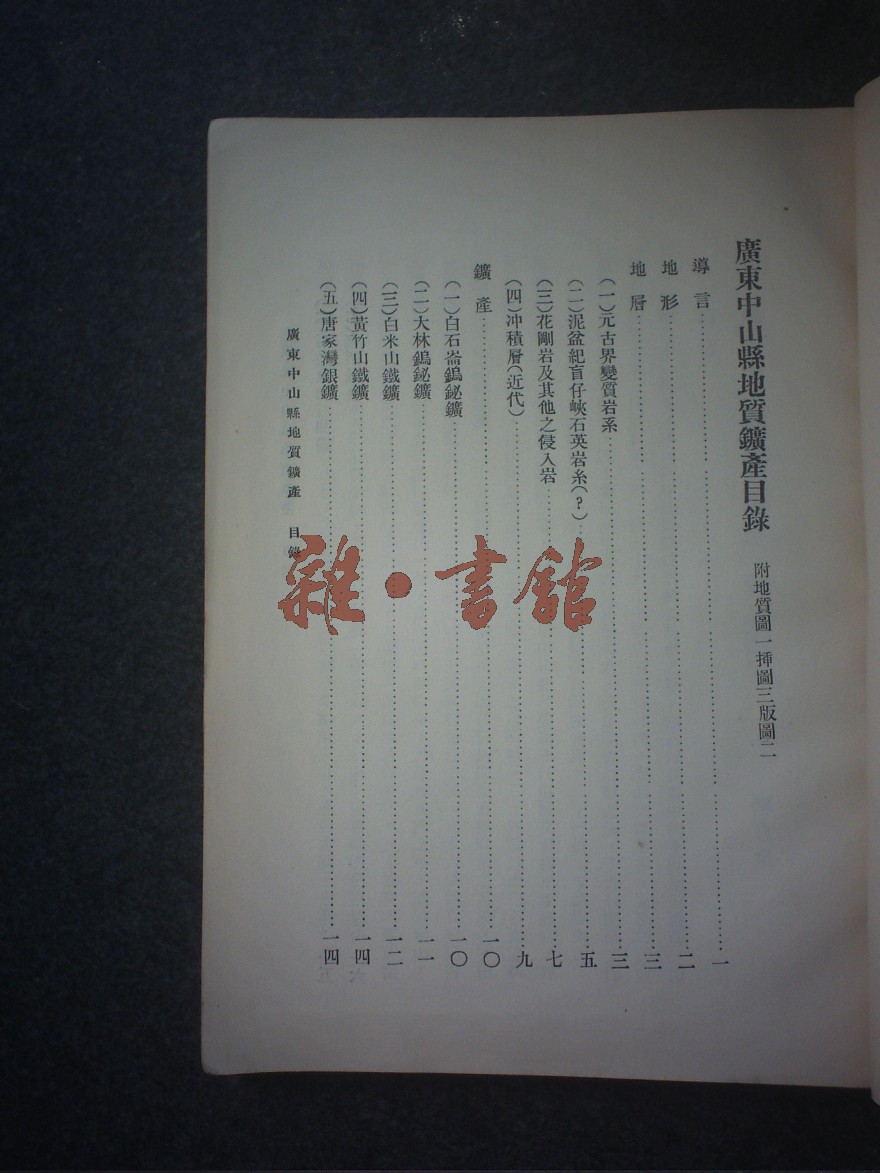 廣東中山縣地質鑛產目錄 附地質圖一揷圖三版圖二
導言 一
地形 二
地層 三
(一)元古界變質岩系 三
(二)泥盆紀盲仔峽石英岩系(?) 五
(三)花剛岩及其他之侵入岩 七
(四)冲積層(近代) 九
鑛產 一〇
(一)白石崙鎢鉍鑛 一〇
(二)大林鎢鉍鑛 一一
(三)白米山鐵鑛 一二
(四)黃竹山鐵鑛 一四
(五)唐家灣銀鑛 一四
廣東中山縣地質鑛產 目錄
雜·書館